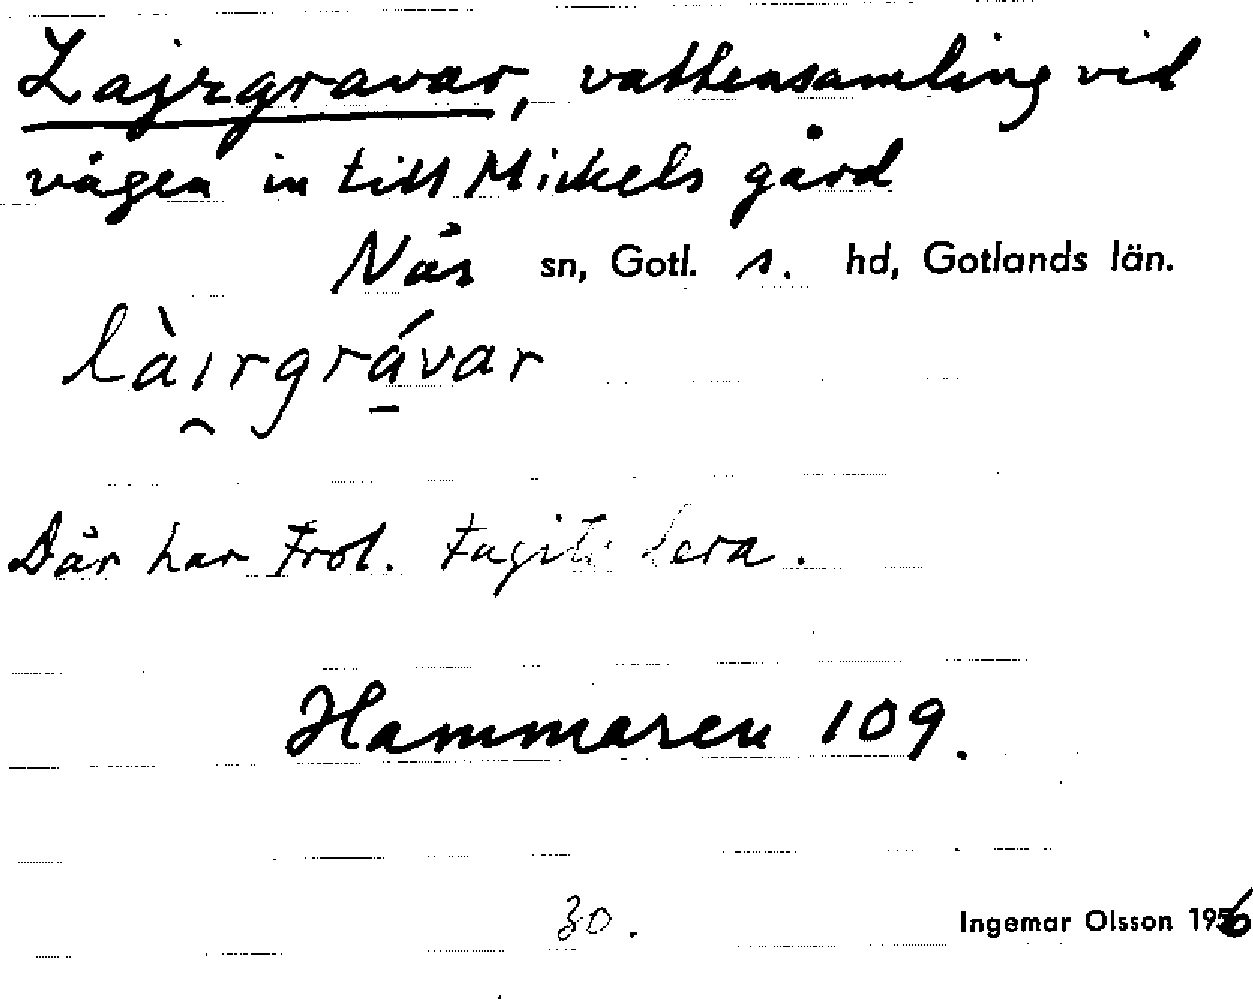 Lajrgravar, vattensamling vid
vägen in till Mickels gård
När sn, Gotl. s. hd, Gotlands län.
làırgrávar
Där har Frol. tagits lera.
Hammaren 109.
30.
Ingemar Olsson 1956